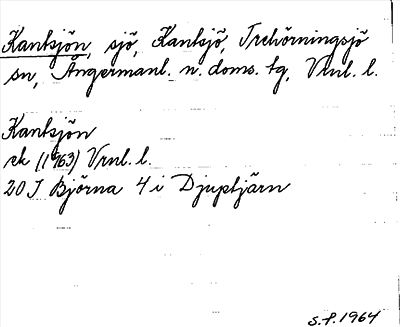 Kantsjön, sjö, Kantsjö, Trehörningsjö
sn, Ångermanl. n. doms. tg, Vrnl. l.
Kantsjön
ek (1963) Vrnl. l.
20 I Björna 4 i Djuptjärn
S.P. 1964